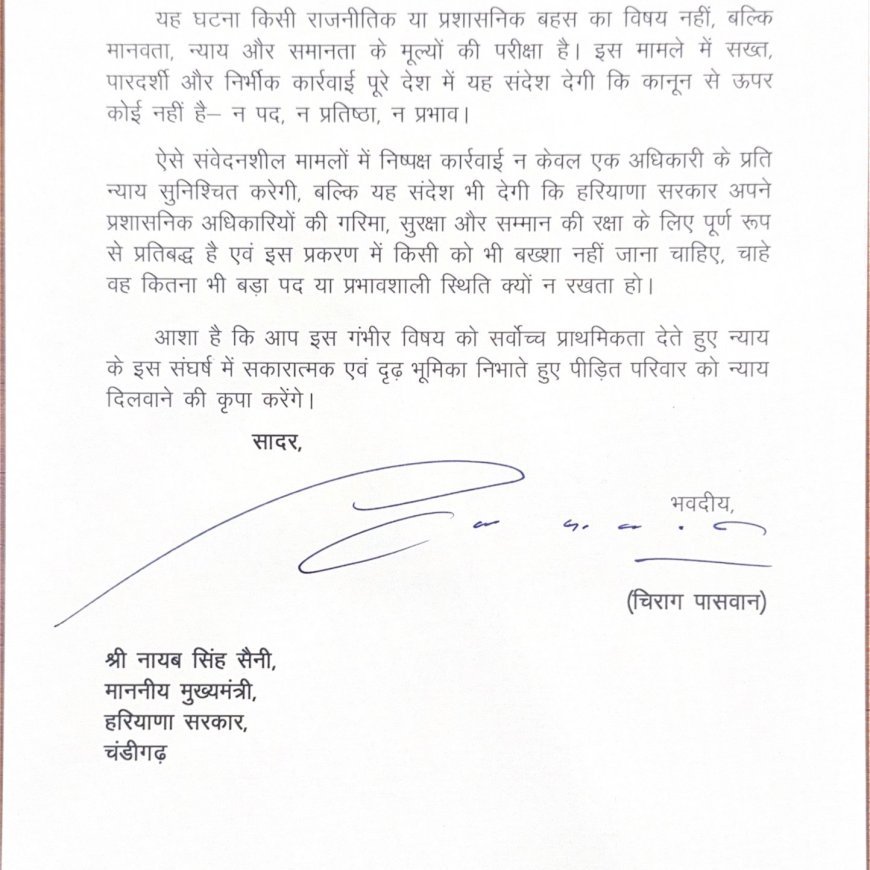 यह घटना किसी राजनीतिक या प्रशासनिक बहस का विषय नहीं, बल्कि
मानवता, न्याय और समानता के मूल्यों की परीक्षा है। इस मामले में सख्त,
पारदर्शी और निर्भीक कार्रवाई पूरे देश में यह संदेश देगी कि कानून से ऊपर
कोई नहीं है– न पद, न प्रतिष्ठा, न प्रभाव।
ऐसे संवेदनशील मामलों में निष्पक्ष कार्रवाई न केवल एक अधिकारी के प्रति
न्याय सुनिश्चित करेगी, बल्कि यह संदेश भी देगी कि हरियाणा सरकार अपने
प्रशासनिक अधिकारियों की गरिमा, सुरक्षा और सम्मान की रक्षा के लिए पूर्ण रूप
से प्रतिबद्ध है एवं इस प्रकरण में किसी को भी बख्शा नहीं जाना चाहिए, चाहे
वह कितना भी बड़ा पद या प्रभावशाली स्थिति क्यों न रखता हो।
आशा है कि आप इस गंभीर विषय को सर्वोच्च प्राथमिकता देते हुए न्याय
के इस संघर्ष में सकारात्मक एवं दृढ़ भूमिका निभाते हुए पीड़ित परिवार को न्याय
दिलवाने की कृपा करेंगे।
सादर,
भवदीय,
(चिराग पासवान)
श्री नायब सिंह सैनी,
माननीय मुख्यमंत्री,
हरियाणा सरकार,
चंडीगढ़